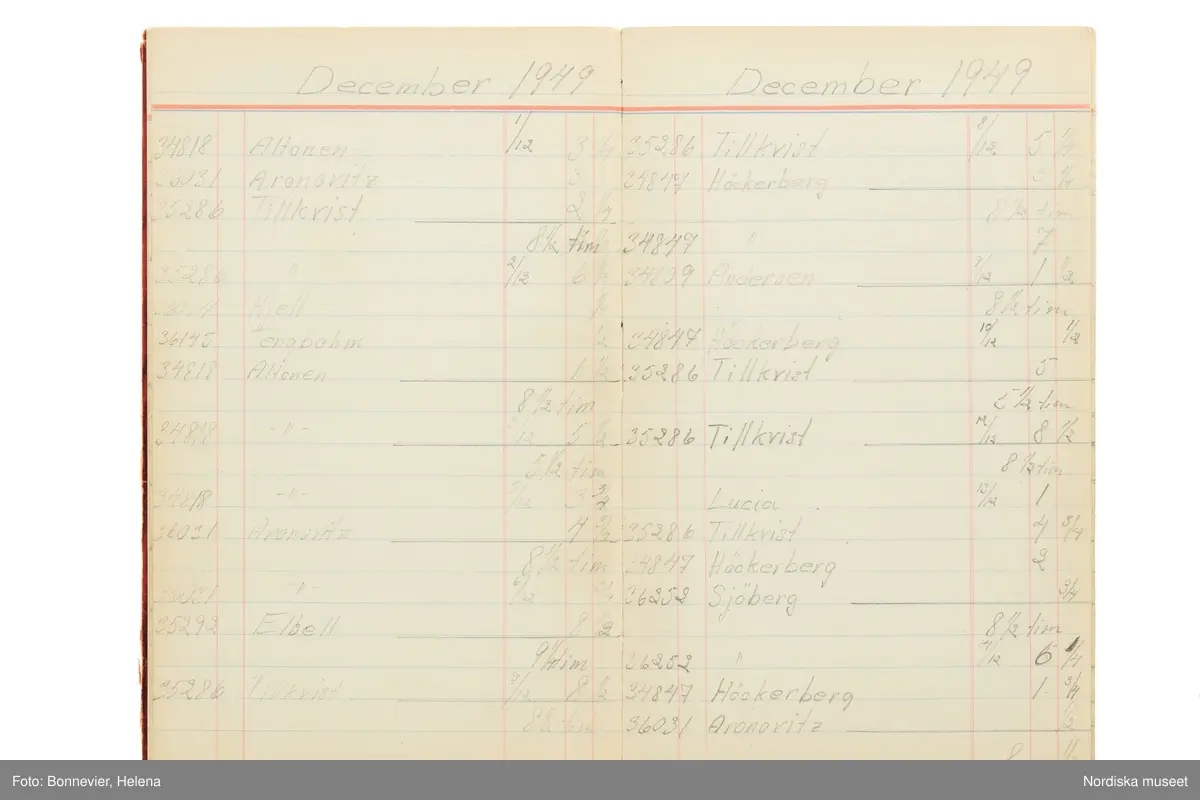 December 1949
34818 Altonen 1/12 3
36031 Aronovitz
35286 Tillkvist 2
8 1/2 tim
35286 " 2/12 6
Hjell
36145 Tengbohm 1/2
34818 Altonen 1 1/2
8 1/2 tim
34818 -"- 5 1/2
5 1/2 tim
34818 -"- 3 3/4
36031 Aronovitz 4 3/4
8 1/2 tim
36031 -"- 6/12
35292 Elbell 8 1/2
9 1/4 tim
35286 Tillkvist 7/12 8 1/2
8 1/2 tim
December 1949
35286 Tillkvist 8/12 5 1/4
34847 Höckerberg 3 1/4
8 1/2 tim
34847 " 7
34039 Andersen 9/12 1 1/2
8 1/2 tim
34847 Höckerberg 10/12 1/2
35286 Tillkvist 5
5 1/2 tim
35286 Tillkvist 12/12 8 1/2
8 1/2 tim
Lucia 13/12 1
35286 Tillkvist 4 3/4
34847 Höckerberg 2
36252 Sjöberg 3/4
8 1/2 tim
36252 " 14/12 6 1/4
34847 Höckerberg 1 3/4
36031 Aronovitz 1/2
8
Foto: Bonnevier, Helena
Nordiska museet